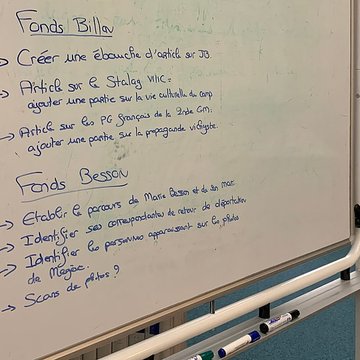 Fonds Billau
→ Créer une ébauche d'article sur JB.
→ Article sur le Stalag VIIIC :
ajouter une partie sur la vie culturelle du camp
→ Article sur les PG français de la 2nde GM :
ajouter une partie sur la propagande vichyste.
Fonds Besson
→ Etablir le parcours de Marie Besson et de son mari
→ Identifier ses correspondantes de retour de déportation
→ Identifier les personnes apparaissant sur les photos
de
→ Scans de photos ?